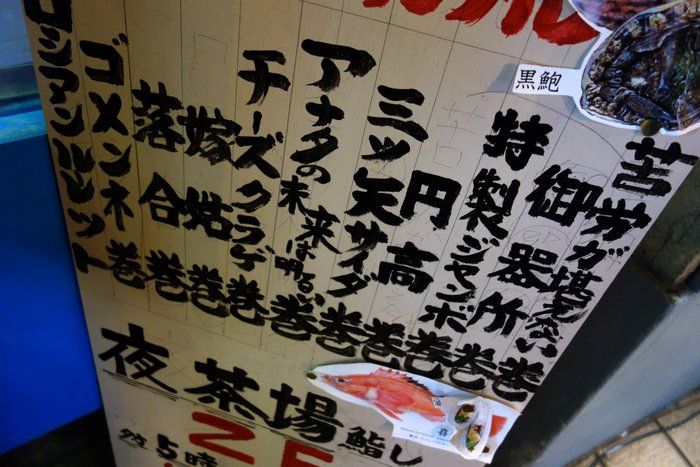 黒鮑
苦労が堪えない巻
御器所巻
特製ジャンボ巻
円高巻
三ツ矢サイダ巻
アナタの未来は明るい巻
チーズクラゲ巻
嫁姑巻
落合巻
ゴメンネ巻
ロシアンルーレット
夜茶場鮨し
2F
5時